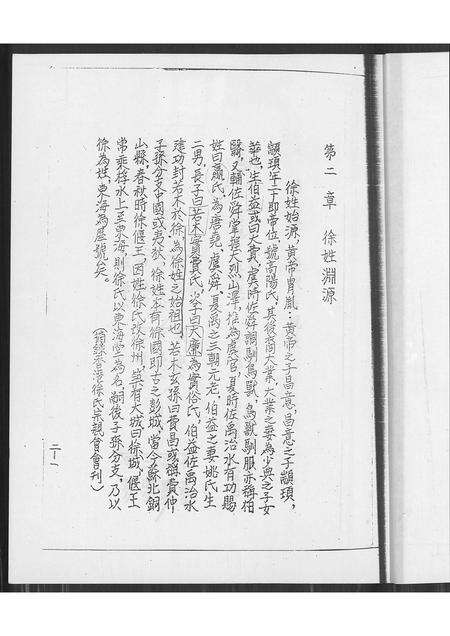 第二章 徐姓淵源
徐姓始源，黃帝胄胤：黃帝之子昌意，昌意之子顓頊，
顓頊年二十即帝位，號高陽氏，其後裔大業，大業之妻為少典之子女
華也，生伯益或曰大費，虞時佐舜調馴鳥獸，鳥獸馴服亦稱柏
翳，又輔佐舜掌握火烈山澤，推為虞官，夏時佐禹治水有功賜
姓曰嬴氏，為唐堯，虞舜，夏禹之三朝元老，伯益之妻姚氏生
二男，長子曰若木實費氏，次子曰大廉為實俗氏，伯益佐禹治水
建功封若木於徐，為徐姓之始祖也，若木玄孫曰費昌或稱費仲
子孫分支中國或夷狄，徐姓本有徐國即古之彭城，當今蘇北銅
山縣，春秋時徐偃王，因姓徐氏改徐州，其有大城曰徐城，偃王
常乘舟水上至東海，則徐氏以東海堂為名，嗣後子孫分支，乃以
徐為姓，東海為屋號矣。
（摘錄台灣徐氏宗親會會刊）
二－1